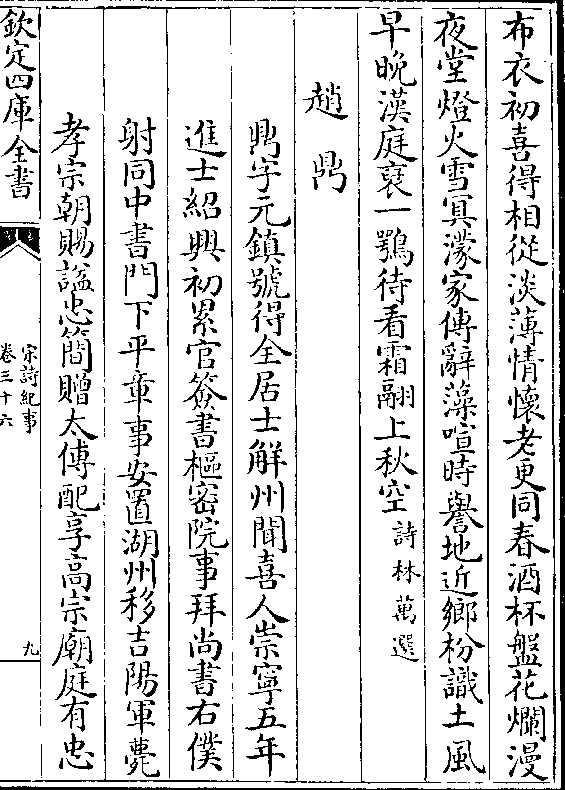 布衣初喜得相從淡薄情懷老更同春酒杯盤花爛漫
夜堂燈火雪冥濛家傳辭藻喧時譽地近鄉枌識土風
早晚漢庭裒一鶚待看霜翮上秋空詩林萬選
趙鼎
鼎字元鎮號得全居士解州聞喜人崇寧五年
進士紹興初累官簽書樞密院事拜尚書右僕
射同中書門下平章事安置湖州移吉陽軍薨
孝宗朝賜諡忠簡贈太傅配享高宗廟庭有忠
欽定四庫全書
宋詩紀事
卷三十六
九